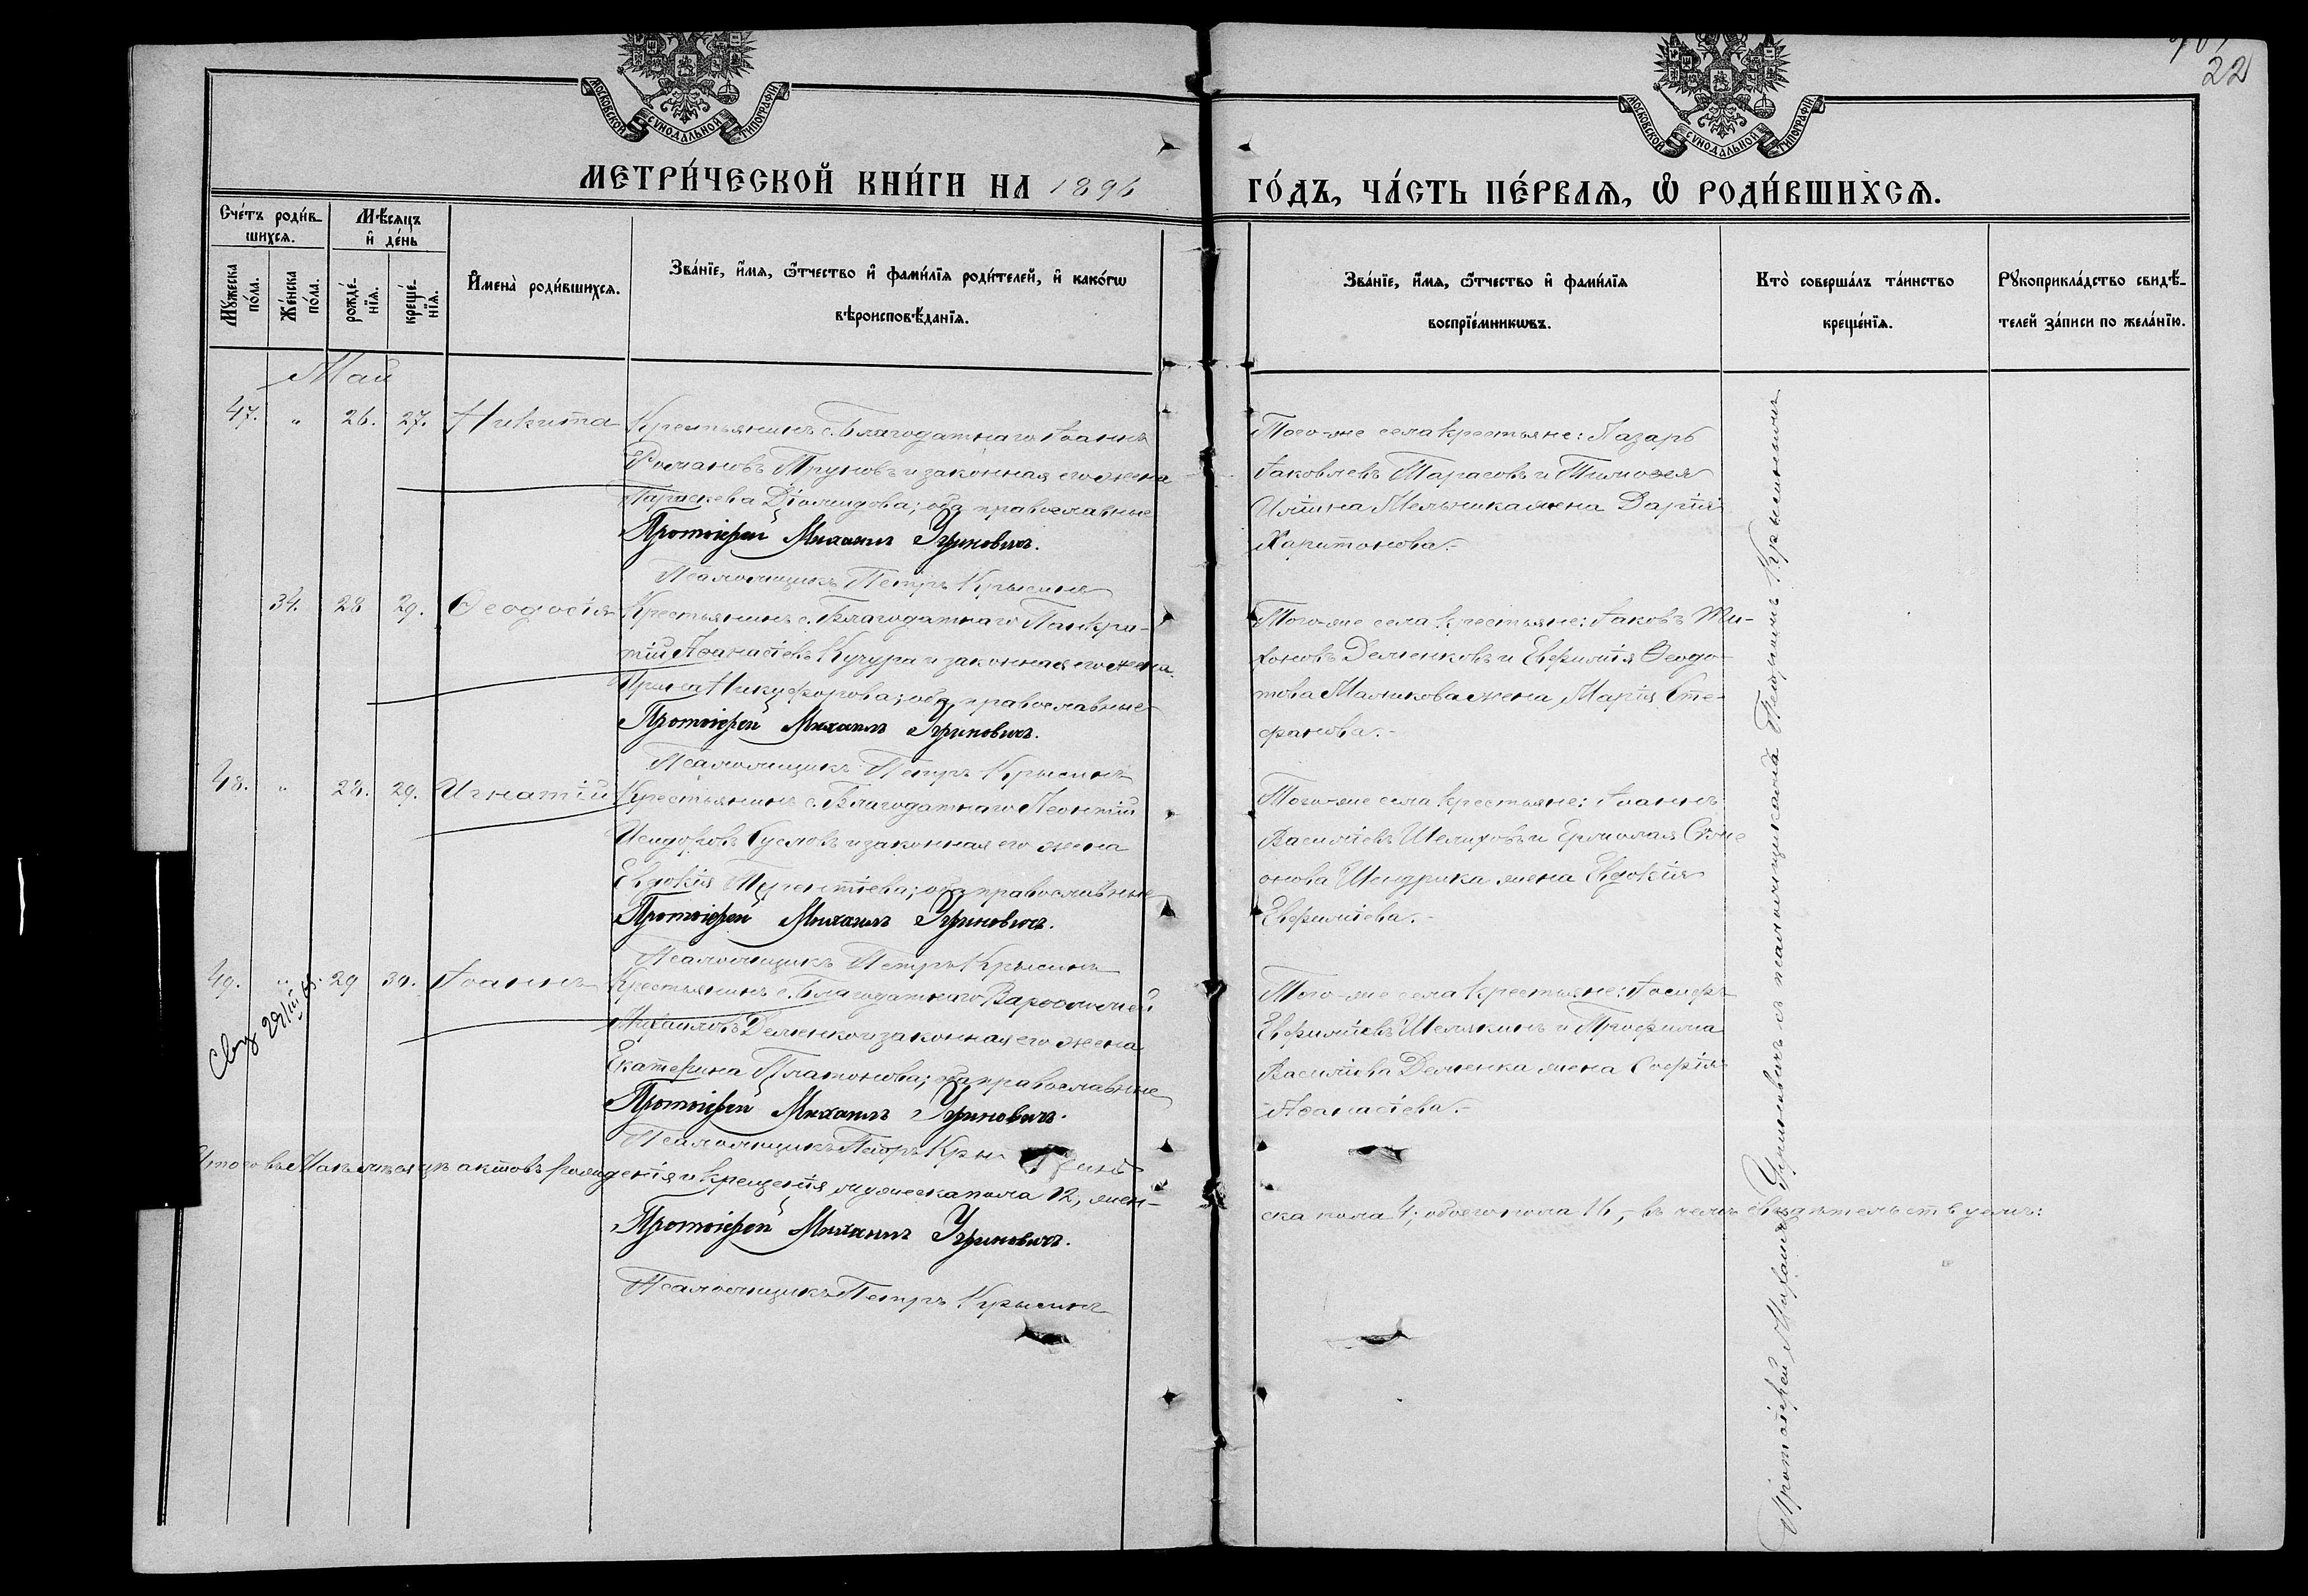 22
МОСКОВСКОЙ СУНОДАЛЬНОЙ ТИПОГРАФІИ
МОСКОВСКОЙ СУНОДАЛЬНОЙ ТИПОГРАФІИ
МЕТРИ́ЧЕСКОЙ КНИ́ГИ НА 1896
ГО́ДЪ, ЧА́СТЬ ПЕ́РВАѦ, Ѡ҆ РОДИ́ВШИХСѦ.
Сче́тъ роди́в-
шихсѧ.
Мѣ́сѧцъ
и҆ де́нь
Мꙋ́жеска
по́ла.
Же́нска
по́ла.
рожде́-
нїѧ.
креще́-
нїѧ.
И҆мена̀ роди́вшихсѧ.
Зва́нїе, и҆́мѧ, ѻ҆́тчество и҆ фами́лїѧ роди́телей, и҆ како́гѡ
вѣроисповѣ́данїѧ.
Зва́нїе, и҆́мѧ, ѻ҆́тчество и҆ фами́лїѧ
воспрїе́мникѡвъ.
Кто̀ соверша́лъ та́инство
креще́нїѧ.
Рꙋкоприкла́дство свидѣ́-
телей за́писи по жела́нїю.
Май
47. " 26. 27. Никита
Крестьянинъ с. Благодатнаго Іоаннъ
Романовъ Труновъ и законная его жена
Параскева Діомидова; оба православные
Протоіерей Михаилъ Угриновичъ.
Псаломщикъ Петръ Крысинъ
Того-же села крестьяне: Лазарь
Іаковлевъ Тарасовъ и Тимоѳея
Иліина Мельника жена Дарія
Харитонова.-
34. 28 29. Ѳеодосія
Крестьянинъ с. Благодатнаго Панкра-
тій Аѳанасіевъ Кучура и законная его жена
Ирина Никифорова; оба православные
Протоіерей Михаилъ Угриновичъ.
Псаломщикъ Петръ Крысинъ
Того-же села крестьяне: Іаковъ Ти-
хоновъ Деменковъ и Евфимія Ѳеодо-
това Маликова жена Марія Сте-
фанова.-
48. " 28. 29. Игнатій
Крестьянинъ с. Благодатнаго Леонтій
Исидоровъ Сусловъ и законная его жена
Евдокія Терентіева; оба православные
Протоіерей Михаилъ Угриновичъ.
Псаломщикъ Петръ Крысинъ
Того-же села крестьяне: Іоаннъ
Василіевъ Шелиховъ и Ермолая Симе
онова Шендрика жена Евдокія
Евфиміева.-
49. " 29 30. Іоаннъ
Крестьянинъ с. Благодатнаго Варѳоломей
Михаиловъ Деменко и законная его жена
Екатерина Платонова; оба православные
Протоіерей Михаилъ Угриновичъ.
Псаломщикъ Петръ Крысинъ
Того-же села крестьяне: Іосифъ
Евфиміевъ Шемякинъ и Трофима
Василіева Деменка жена Софія
Аѳанасіева.-
Итого въ Маѣ мѣсяцѣ актовъ рожденія и крещенія мужеска пола 12, жен-
ска пола 4; обоего пола 16,- въ чемъ свидѣтельствуемъ:
Протоіерей Михаилъ Угриновичъ.
Псаломщикъ Петръ Крысинъ
Протоіерей Михаилъ Угриновичъ съ псаломщикомъ Петромъ Крысинымъ